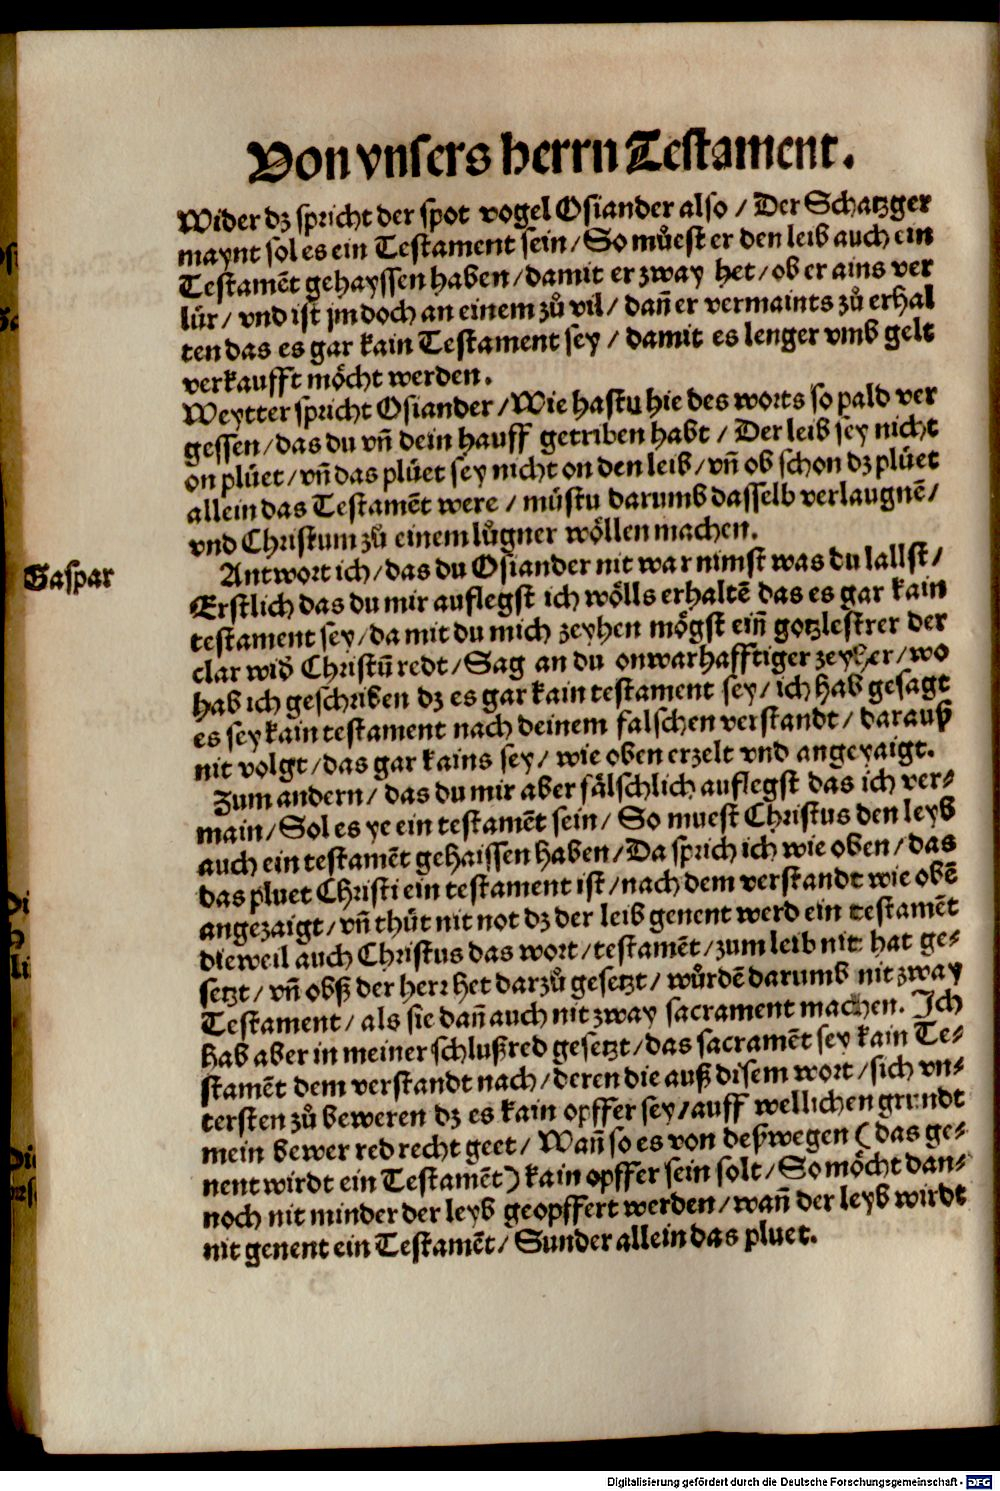 Von vnsers herrn Testament.
Wider dz spricht der spot vogel Osiander also / Der Schatzger
maynt sol es ein Testament sein / So muͤest er den leib auch ein
Testamẽt gehayssen haben / damit er zway het / ob er ains ver
lür / vnd ist jm doch an einem zů vil / dañ er vermaints zů erhal
ten das es gar kain Testament sey / damit es lenger vmb gelt
verkaufft moͤcht werden.
Weytter spricht Osiander / Wie hastu hie des worts so pald ver
gessen / das du vñ dein hauff getriben habt / Der leib sey nicht
on pluͤet / vñ das pluͤet sey nicht on den leib / vñ ob schon dz pluͤet
allein das Testamẽt were / muͤstu darumb dasselb verlaugnẽ /
vnd Christum zů einem lůgner woͤllen machen.
Gaspar
Antwort ich / das du Osiander nit war nimst was du lallst /
Erstlich das du mir auflegst ich woͤlls erhaltẽ das es gar kain
testament sey / da mit du mich zeyhen moͤgst eiñ gotzlestrer der
clar wid̃ Christũ redt / Sag an du onwarhafftiger zeyher / wo
hab ich geschriben dz es gar kain testament sey / ich hab gesagt
es sey kain testament nach deinem falschen verstandt / darauß
nit volgt / das gar kains sey / wie oben erzelt vnd angeyaigt.
Zum andern / das du mir aber faͤlschlich auflegst das ich ver⸗
main / Sol es ye ein testamẽt sein / So muest Christus den leyb
auch ein testamẽt gehaissen haben / Da sprich ich wie oben / das
das pluet Christi ein testament ist / nach dem verstandt wie obẽ
angezaigt / vñ thuͤt nit not dz der leib genent werd ein testamẽt
dieweil auch Christus das wort / testamẽt / zum leib nit hat ge⸗
setzt / vñ obß der herr het darzů gesetzt / wuͤrdẽ darumb nit zway
Testament / als sie dañ auch nit zway sacrament machen. Ich
hab aber in meiner schlußred gesetzt / das sacramẽt sey kain Te⸗
stamẽt dem verstandt nach / deren die auß disem wort / sich vn⸗
tersten zů beweren dz es kain opffer sey / auff wellichen grundt
mein bewer red recht geet / Wañ so es von deßwegen ( das ge⸗
nent wirdt ein Testamẽt ) kain opffer sein solt / So moͤcht dan⸗
noch nit minder der leyb geopffert werden / wañ der leyb wirdt
nit genent ein Testamẽt / Sunder allein das pluet.
Digitalisierung gefördert durch die Deutsche Forschungsgemeinschaft - DFG